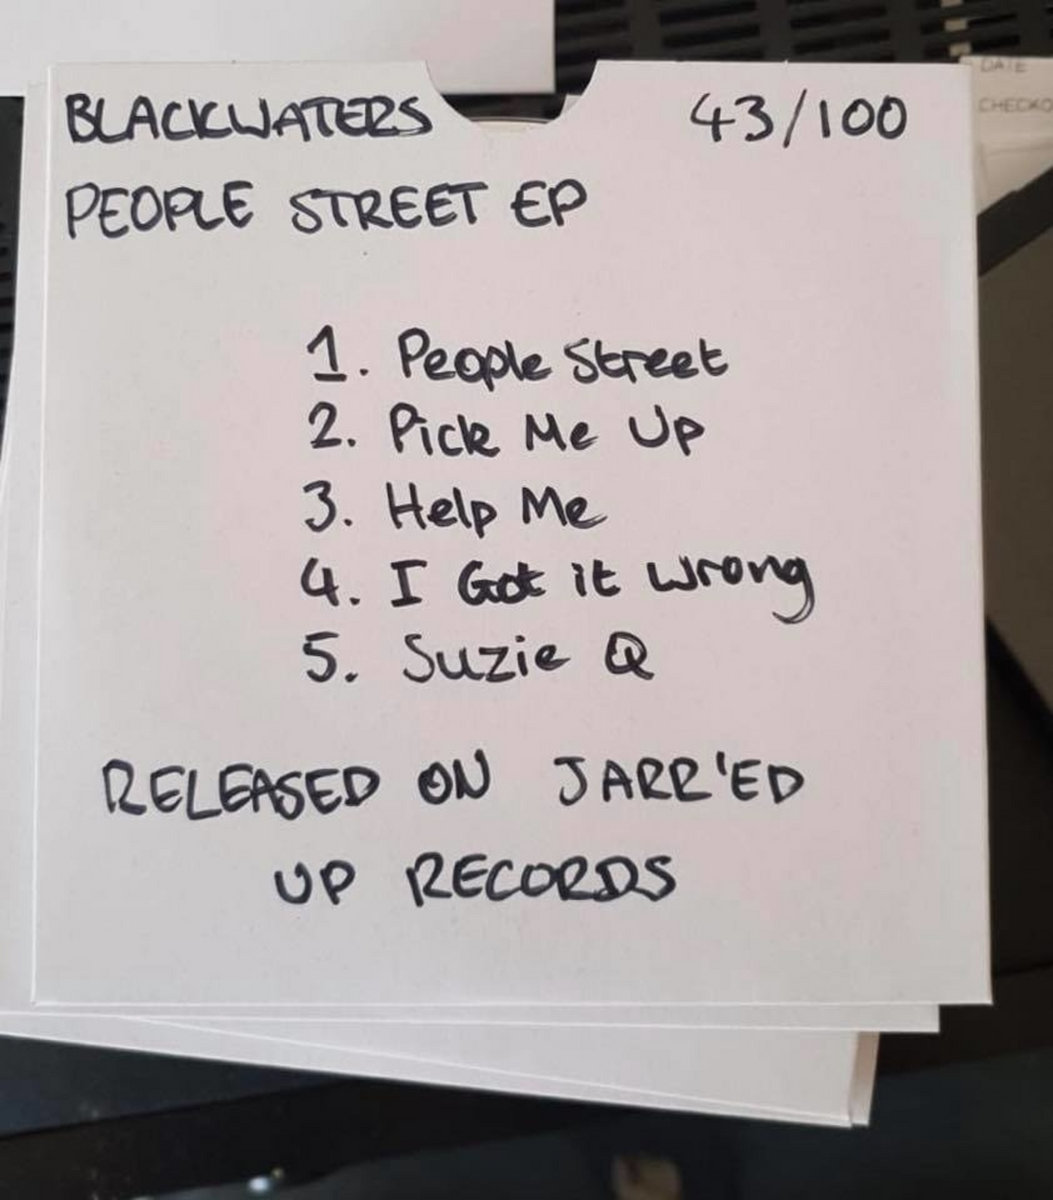 BLACKWATERS 43/100
PEOPLE STREET EP
1. People Street
2. Pick Me Up
3. Help Me
4. I Got it wrong
5. Suzie Q
RELEASED ON JARR'ED
UP RECORDS
DATE